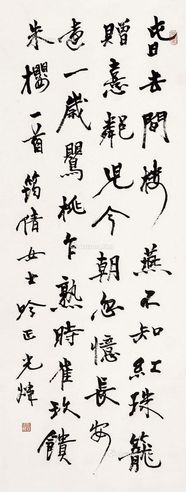 日去問樓燕不知紅珠籠
贈鄰兒今朝忽憶長安
一歲鸎桃乍熟時崔玖饋
朱櫻一首筠倩女士吟正光煒